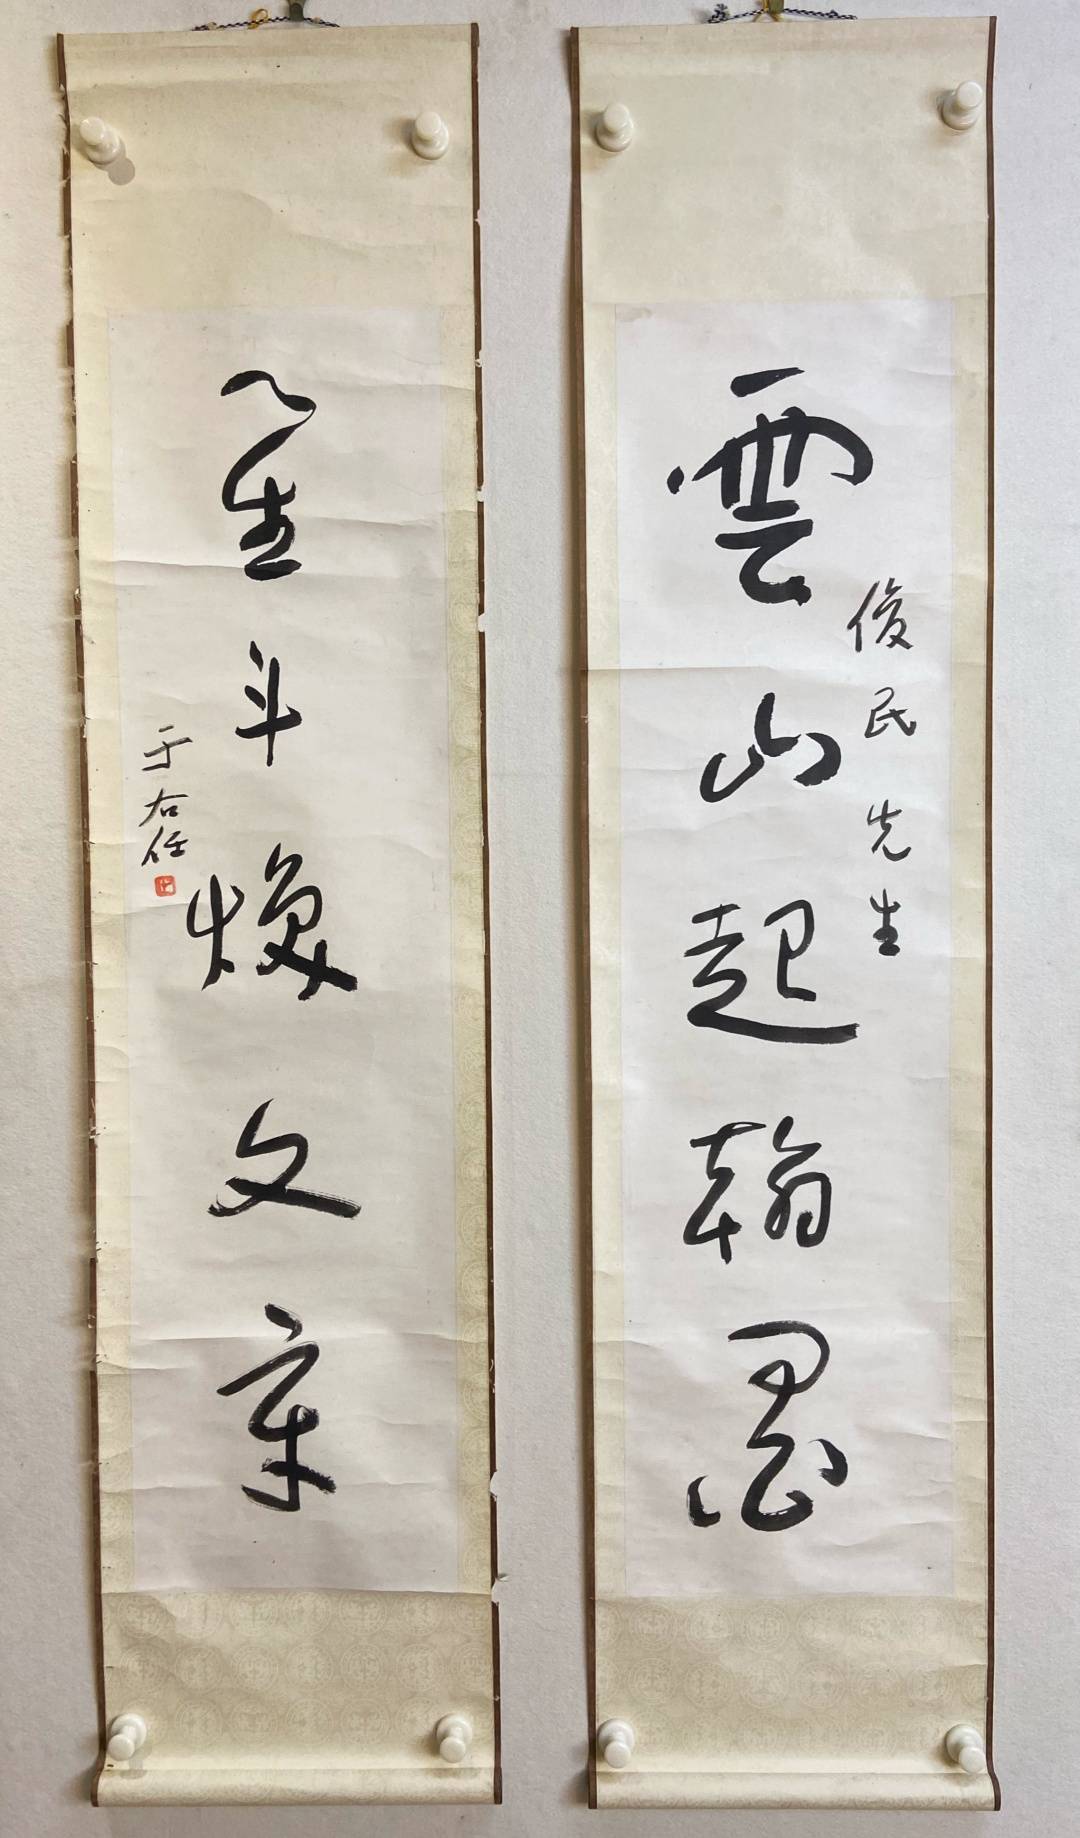 雲山起翰墨
俊民先生
星斗煥文章
于右任